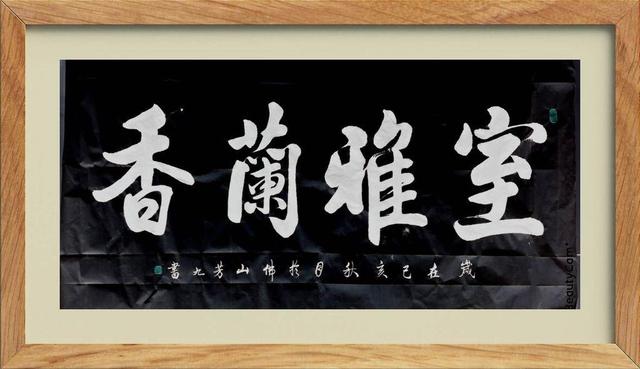 室雅蘭香
歲在己亥秋月於佛山芳書